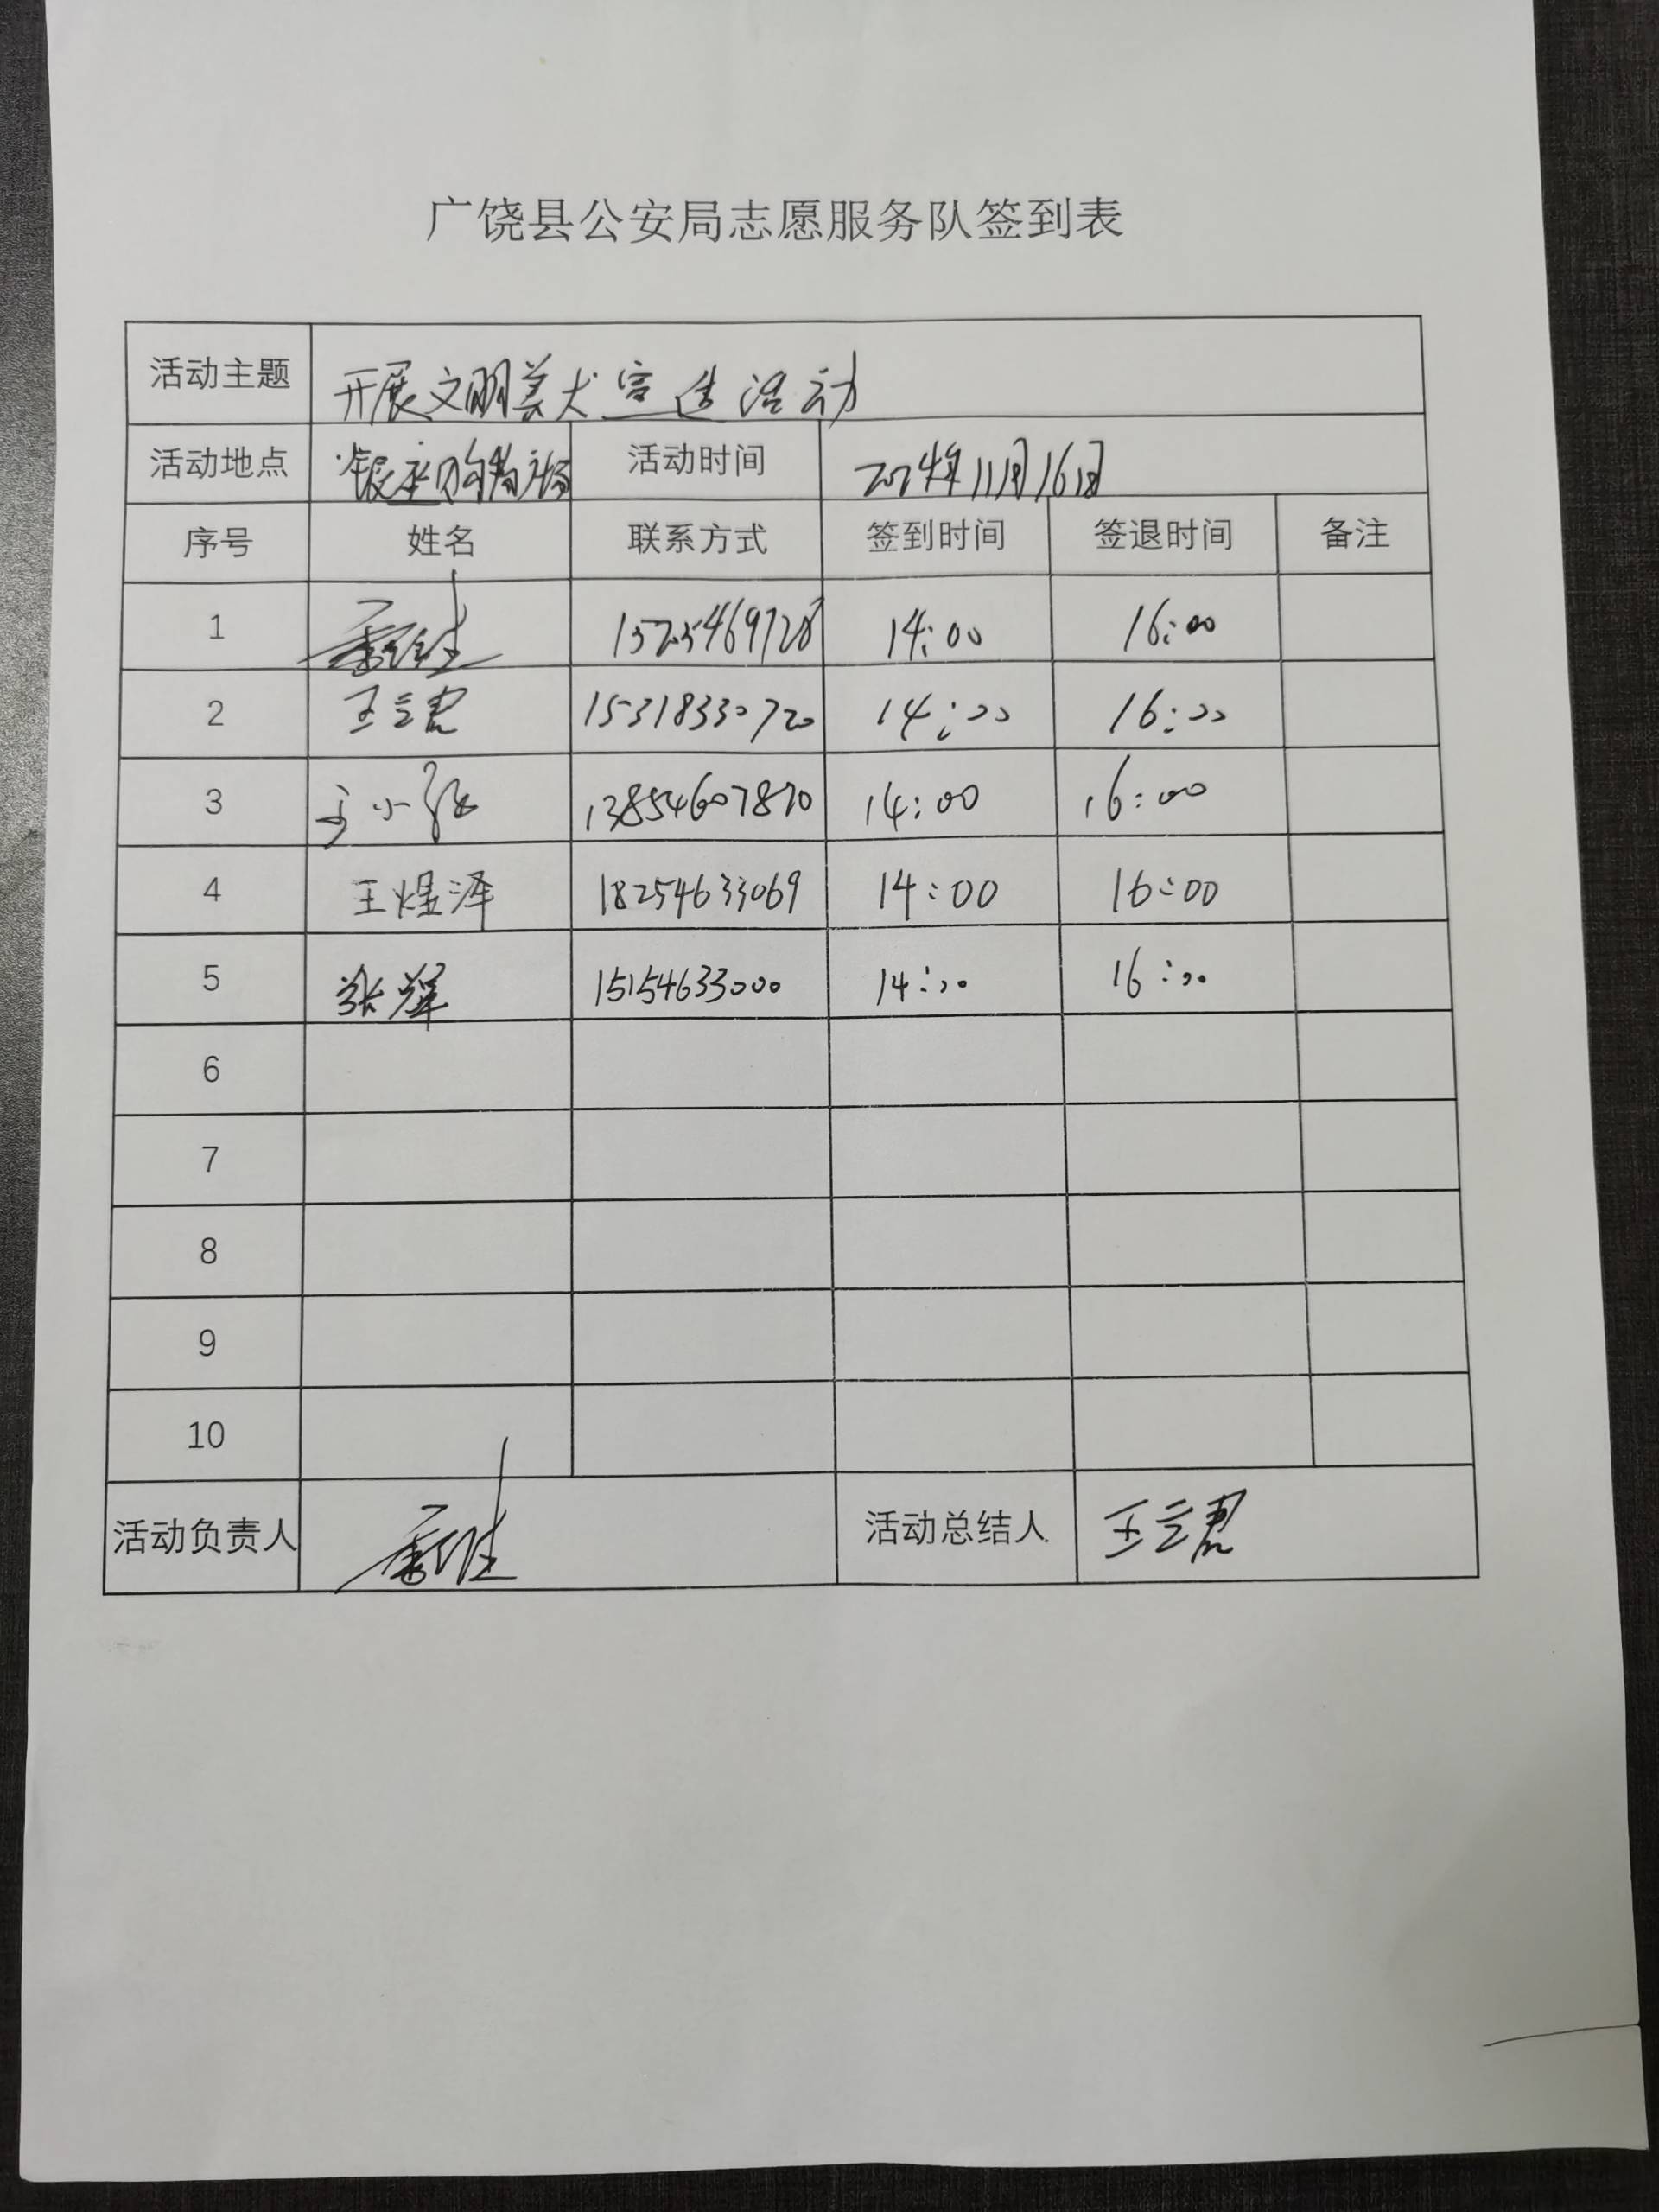 广饶县公安局志愿服务队签到表
活动主题 开展文明养犬宣传活动
活动地点 银座购物广场 活动时间 2024年11月16日
序号 姓名 联系方式 签到时间 签退时间 备注
1 14:00 16:00
2 王立君 15318330720 14:00 16:00
3 小 13854607870 14:00 16:00
4 王煜泽 18254633069 14:00 16:00
5 张辉 15154633000 14:00 16:00
6
7
8
9
10
活动负责人 活动总结人 王立君